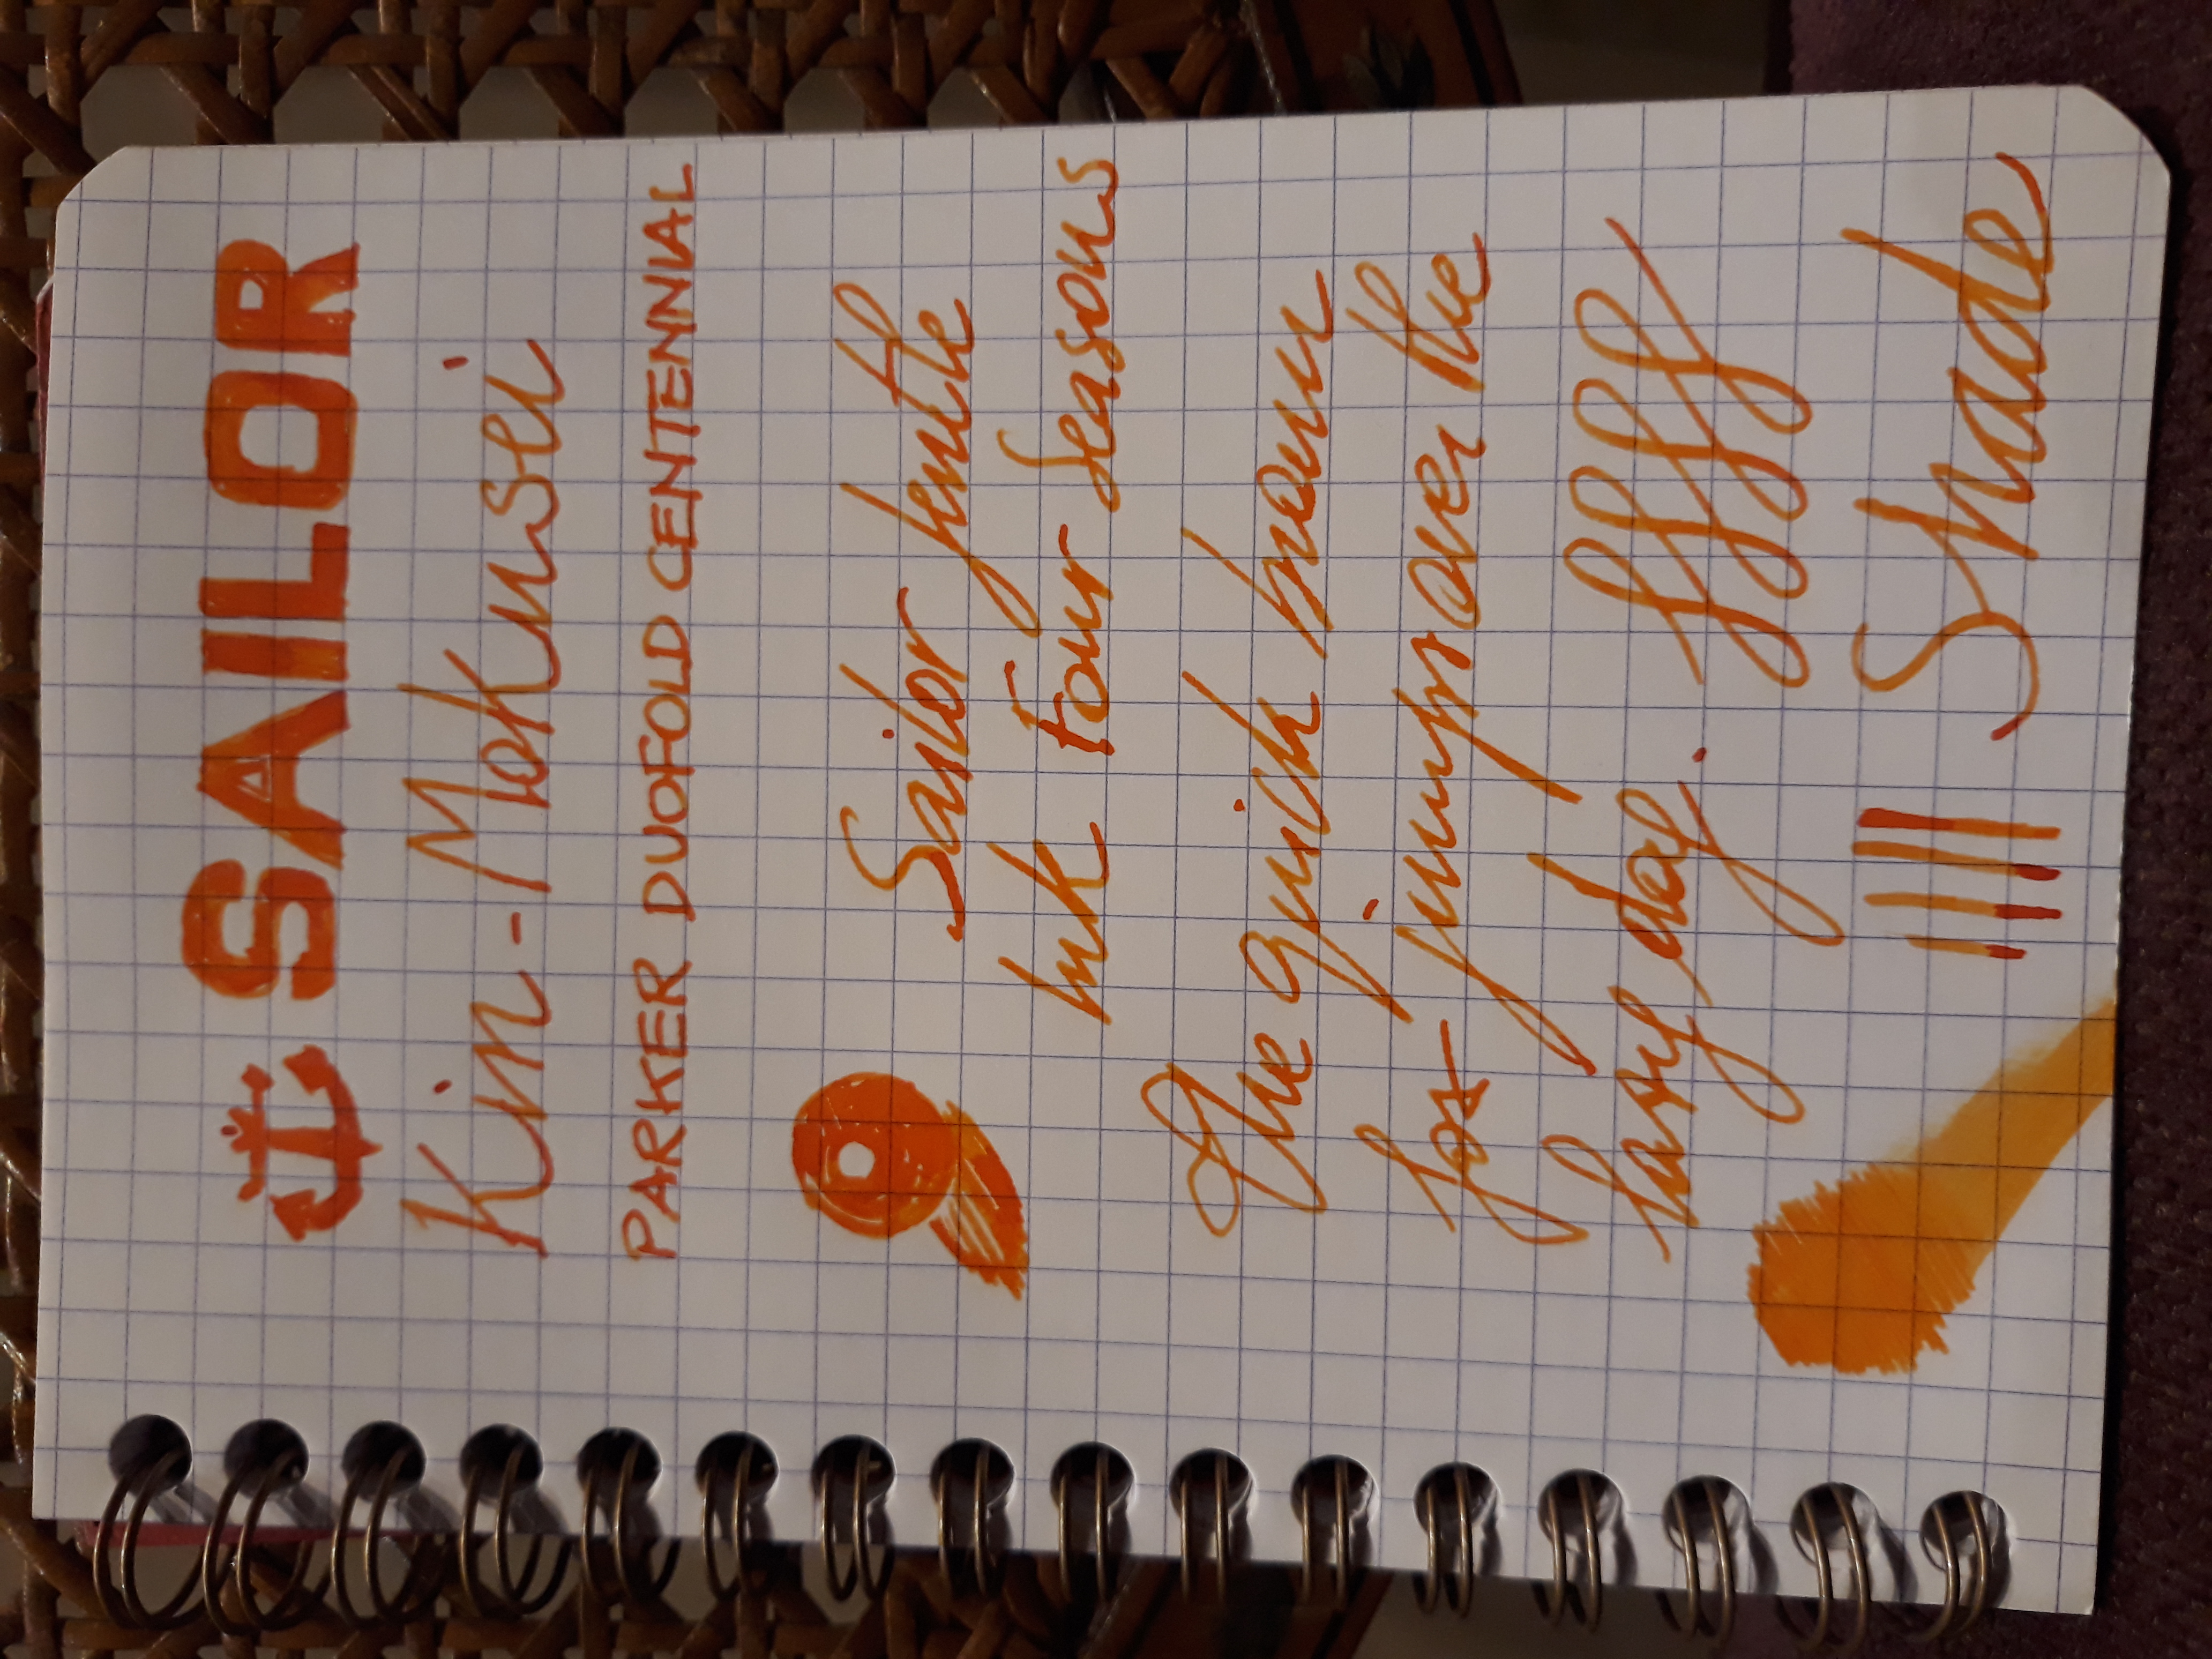 SAILOR
Kin-Mokusei
PARKER DUOFOLD CENTENNIAL
Sailor Jentle
ink Four Seasons
The quick brown
fox jumps over the
lazy dog. ffff
Shade